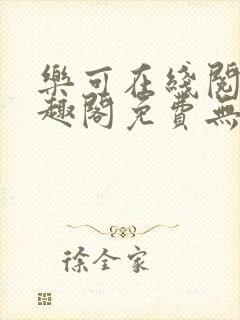 樂可在綫閱
趣閣免費無
徐全家